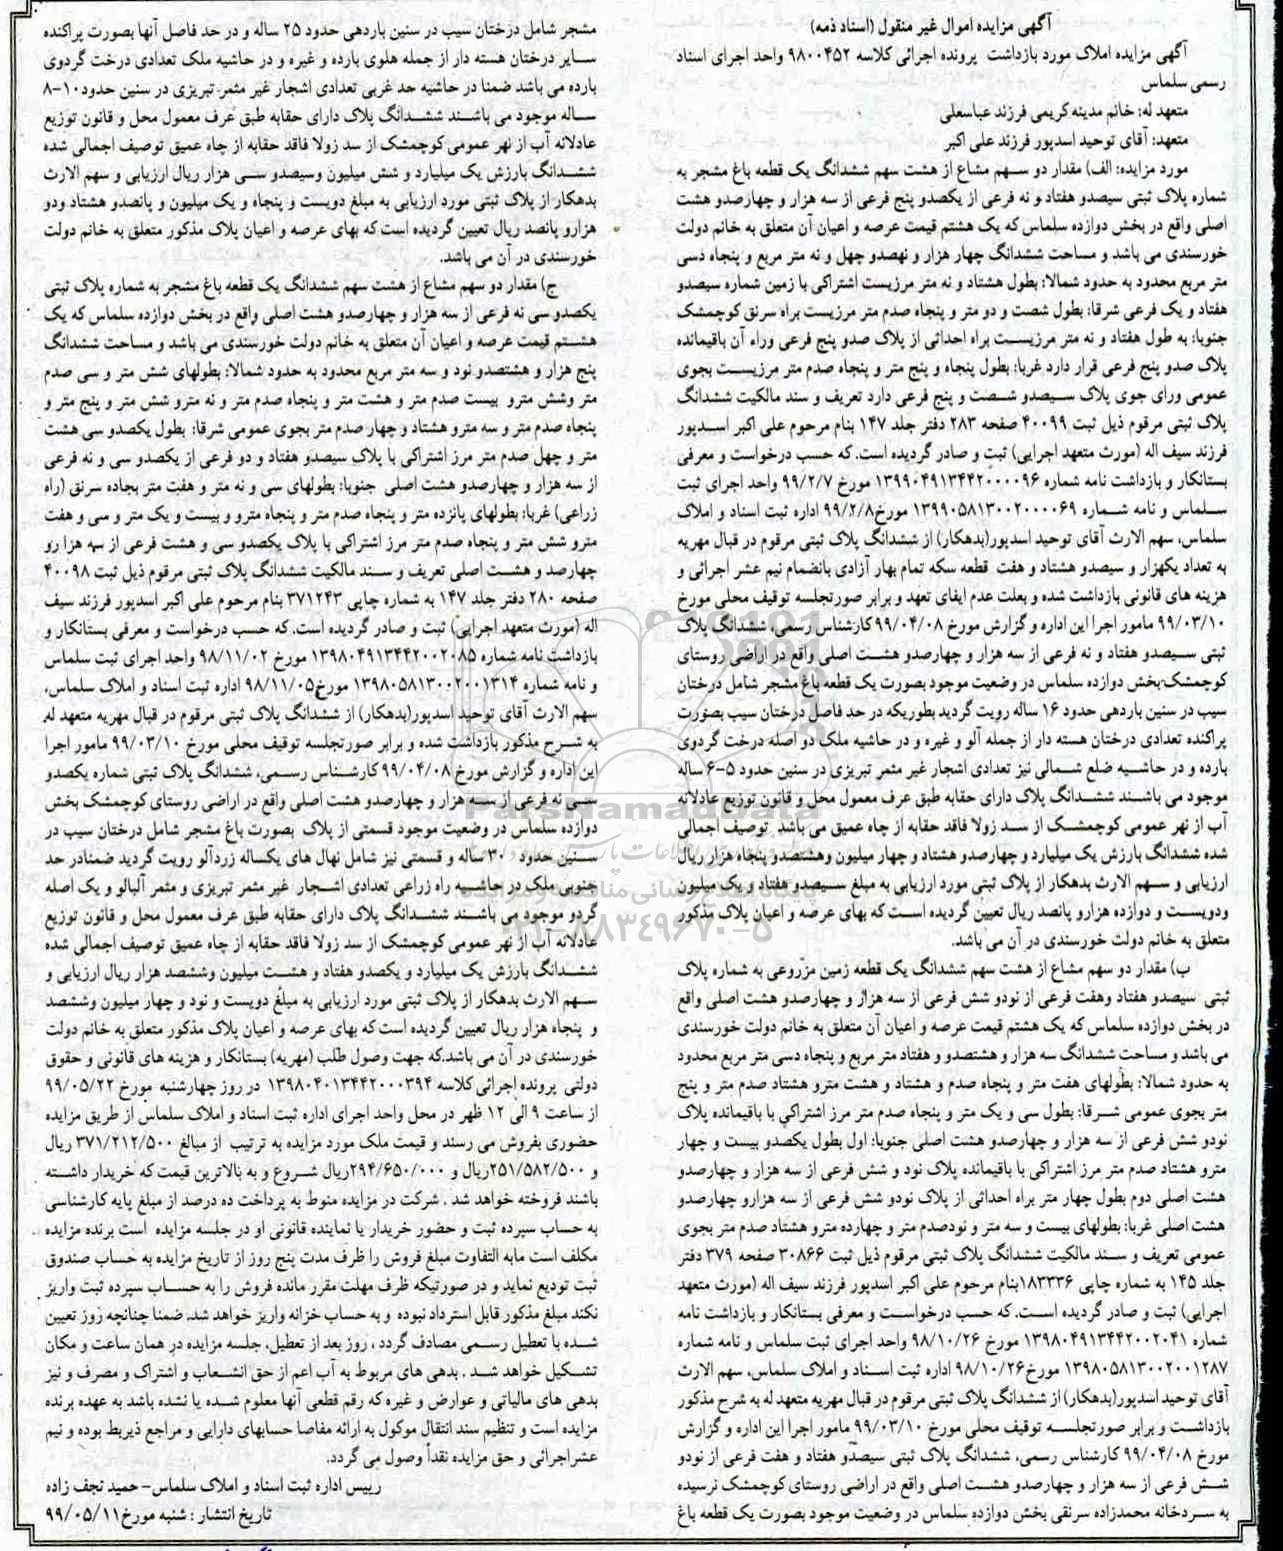 آگهی مزایده اموال غیر منقول (اسناد ذمه)
آگهی مزایده املاک مورد بازداشت پرونده اجرائی کلاسه ۹۸۰۰۴۵۲ واحد اجرای اسناد
رسمی سلماس
متعهد له: خانم مدینه کریمی فرزند عباسعلی
متعهد: آقای توحید اسدپور فرزند علی اکبر
مورد مزایده: الف) مقدار دو سهم مشاع از هشت سهم ششدانگ یک قطعه باغ مشجر به
شماره پلاک ثبتی سیصدو هفتاد و نه فرعی از یکصدو پنج فرعی از سه هزار و چهارصدو هشت
اصلی واقع در بخش دوازده سلماس که یک هشتم قیمت عرصه و اعیان آن متعلق به خانم دولت
خورسندی می باشد و مساحت ششدانگ چهار هزار و نهصدو چهل و نه متر مربع و پنجاه دسی
متر مربع محدود به حدود شمالا: بطول هشتاد و نه متر مرزیست اشتراکی با زمین شماره سیصدو
هفتاد و یک فرعی شرقا: بطول شصت و دو متر و پنجاه صدم متر مرزیست براه سرنق کوچمشک
جنوبا: به طول هفتاد و نه متر مرزیست براه احداثی از پلاک صدو پنج فرعی وراء آن باقیمانده
پلاک صدو پنج فرعی قرار دارد غربا: بطول پنجاه و پنج متر و پنجاه صدم متر مرزیست بجوی
عمومی ورای جوی پلاک سیصدو شصت و پنج فرعی دارد تعریف و سند مالکیت ششدانگ
پلاک ثبتی مرقوم ذیل ثبت ۴۰۰۹۹ صفحه ۲۸۳ دفتر جلد ۱۴۷ بنام مرحوم علی اکبر اسدپور
فرزند سیف اله (مورث متعهد اجرایی) ثبت و صادر گردیده است. که حسب درخواست و معرفی
بستانکار و بازداشت نامه شماره ۱۳۹۹۰۴۹۱۳۴۴۲۰۰۰۰۹۶ مورخ ۹۹/۲/۷ واحد اجرای ثبت
سلماس و نامه شماره ۱۳۹۹۰۵۸۱۳۰۰۲۰۰۰۰۶۹ مورخ ۹۹/۲/۸ اداره ثبت اسناد و املاک
سلماس، سهم الارث آقای توحید اسدپور(بدهکار) از ششدانگ پلاک ثبتی مرقوم در قبال مهریه
به تعداد یکهزار و سیصدو هشتاد و هفت قطعه سکه تمام بهار آزادی بانضمام نیم عشر اجرائی و
هزینه های قانونی بازداشت شده و بعلت عدم ایفای تعهد و برابر صورتجلسه توقیف محلی مورخ
۹۹/۰۳/۱۰ مامور اجرا این اداره و گزارش مورخ ۹۹/۰۴/۰۸ کارشناس رسمی، ششدانگ پلاک
ثبتی سیصدو هفتاد و نه فرعی از سه هزار و چهارصدو هشت اصلی واقع در اراضی روستای
کوچمشک-بخش دوازده سلماس در وضعیت موجود بصورت یک قطعه باغ مشجر شامل درختان
سیب در سنین باردهی حدود ۱۶ ساله رویت گردید بطوریکه در حد فاصل درختان سیب بصورت
پراکنده تعدادی درختان هسته دار از جمله آلو و غیره و در حاشیه ملک دو اصله درخت گردوی
بارده و در حاشیه ضلع شمالی نیز تعدادی اشجار غیر مثمر تبریزی در سنین حدود ۵-۶ ساله
موجود می باشند ششدانگ پلاک دارای حقابه طبق عرف معمول محل و قانون توزیع عادلانه
آب از نهر عمومی کوچمشک از سد زولا فاقد حقابه از چاه عمیق می باشد توصیف اجمالی
شده ششدانگ بارزش یک میلیارد و چهارصدو هشتاد و چهار میلیون وهشتصدو پنجاه هزار ریال
ارزیابی و سهم الارث بدهکار از پلاک ثبتی مورد ارزیابی به مبلغ سیصدو هفتاد و یک میلیون
ودویست و دوازده هزارو پانصد ریال تعیین گردیده است که بهای عرصه و اعیان پلاک مذکور
متعلق به خانم دولت خورسندی در آن می باشد.
ب) مقدار دو سهم مشاع از هشت سهم ششدانگ یک قطعه زمین مزروعی به شماره پلاک
ثبتی سیصدو هفتاد وهفت فرعی از نودو شش فرعی از سه هزار و چهارصدو هشت اصلی واقع
در بخش دوازده سلماس که یک هشتم قیمت عرصه و اعیان آن متعلق به خانم دولت خورسندی
می باشد و مساحت ششدانگ سه هزار و هشتصدو و هفتاد متر مربع و پنجاه دسی متر مربع محدود
به حدود شمالا: بطولهای هفت متر و پنجاه صدم و هشتاد و هشت مترو هشتاد صدم متر و پنج
متر بجوی عمومی شرقا: بطول سی و یک متر و پنجاه صدم متر مرز اشتراکی با باقیمانده پلاک
نودو شش فرعی از سه هزار و چهارصدو هشت اصلی جنوبا: اول بطول یکصدو بیست و چهار
مترو هشتاد صدم متر مرز اشتراکی با باقیمانده پلاک نود و شش فرعی از سه هزار و چهارصدو
هشت اصلی دوم بطول چهار متر براه احداثی از پلاک نودو شش فرعی از سه هزارو چهارصدو
هشت اصلی غربا: بطولهای بیست و سه متر و نودصدم متر و چهارده مترو هشتاد صدم متر بجوی
عمومی تعریف و سند مالکیت ششدانگ پلاک ثبتی مرقوم ذیل ثبت ۳۰۸۶۶ صفحه ۳۷۹ دفتر
جلد ۱۴۵ به شماره چاپی ۱۸۳۳۳۶بنام مرحوم علی اکبر اسدپور فرزند سیف اله (مورث متعهد
اجرایی) ثبت و صادر گردیده است. که حسب درخواست و معرفی بستانکار و بازداشت نامه
شماره ۱۳۹۸۰۴۹۱۳۴۴۲۰۰۲۰۴۱ مورخ ۹۸/۱۰/۲۶ واحد اجرای ثبت سلماس و نامه شماره
۱۳۹۸۰۵۸۱۳۰۰۲۰۰۱۲۸۷ مورخ ۹۸/۱۰/۲۶ اداره ثبت اسناد و املاک سلماس، سهم الارث
آقای توحید اسدپور(بدهکار) از ششدانگ پلاک ثبتی مرقوم در قبال مهریه متعهد له به شرح مذکور
بازداشت و برابر صورتجلسه توقیف محلی مورخ ۹۹/۰۳/۱۰ مامور اجرا این اداره و گزارش
مورخ ۹۹/۰۴/۰۸ کارشناس رسمی، ششدانگ پلاک ثبتی سیصدو هفتاد و هفت فرعی از نودو
شش فرعی از سه هزار و چهارصدو هشت اصلی واقع در اراضی روستای کوچمشک نرسیده
به سردخانه محمدزاده سرنقی بخش دوازده سلماس در وضعیت موجود بصورت یک قطعه باغ
مشجر شامل درختان سیب در سنین باردهی حدود ۲۵ ساله و در حد فاصل آنها بصورت پراکنده
سایر درختان هسته دار از جمله هلوی بارده و غیره و در حاشیه ملک تعدادی درخت گردوی
بارده می باشد ضمنا در حاشیه حد غربی تعدادی اشجار غیر مثمر تبریزی در سنین حدود۱۰-۸
ساله موجود می باشند ششدانگ پلاک دارای حقابه طبق عرف معمول محل و قانون توزیع
عادلانه آب از نهر عمومی کوچمشک از سد زولا فاقد حقابه از چاه عمیق توصیف اجمالی شده
ششدانگ بارزش یک میلیارد و شش میلیون وسیصدو سی هزار ریال ارزیابی و سهم الارث
بدهکار از پلاک ثبتی مورد ارزیابی به مبلغ دویست و پنجاه و یک میلیون و پانصدو هشتاد ودو
هزارو پانصد ریال تعیین گردیده است که بهای عرصه و اعیان پلاک مذکور متعلق به خانم دولت
خورسندی در آن می باشد.
ج) مقدار دو سهم مشاع از هشت سهم ششدانگ یک قطعه باغ مشجر به شماره پلاک ثبتی
یکصدو سی نه فرعی از سه هزار و چهارصدو هشت اصلی واقع در بخش دوازده سلماس که یک
هشتم قیمت عرصه و اعیان آن متعلق به خانم دولت خورسندی می باشد و مساحت ششدانگ
پنج هزار و هشتصدو نود و سه متر مربع محدود به حدود شمالا: بطولهای شش متر و سی صدم
متر وشش مترو بیست صدم متر و هشت متر و پنجاه صدم متر و نه مترو شش متر و پنج متر و
پنجاه صدم متر و سه مترو هشتاد و چهار صدم متر بجوی عمومی شرقا: بطول یکصدو سی هشت
متر و چهل صدم متر مرز اشتراکی با پلاک سیصدو هفتاد و دو فرعی از یکصدو سی و نه فرعی
از سه هزار و چهارصدو هشت اصلی جنوبا: بطولهای سی و نه متر و هفت متر بجاده سرنق (راه
زراعی) غربا: بطولهای پانزده متر و پنجاه صدم متر و پنجاه مترو و بیست و یک متر و سی و هفت
مترو شش متر و پنجاه صدم متر مرز اشتراکی با پلاک یکصدو سی و هشت فرعی از سه هزا رو
چهارصد و هشت اصلی تعریف و سند مالکیت ششدانگ پلاک ثبتی مرقوم ذیل ثبت ۴۰۰۹۸
صفحه ۲۸۰ دفتر جلد ۱۴۷ به شماره چاپی ۳۷۱۲۴۳ بنام مرحوم علی اکبر اسدپور فرزند سیف
اله (مورث متعهد اجرایی) ثبت و صادر گردیده است. که حسب درخواست و معرفی بستانکار و
بازداشت نامه شماره ۱۳۹۸۰۴۹۱۳۴۴۲۰۰۲۰۸۵ مورخ ۹۸/۱۱/۰۲ واحد اجرای ثبت سلماس
و نامه شماره ۱۳۹۸۰۵۸۱۳۰۰۲۰۰۱۳۱۴ مورخ۹۸/۱۱/۰۵ اداره ثبت اسناد و املاک سلماس،
سهم الارث آقای توحید اسدپور(بدهکار) از ششدانگ پلاک ثبتی مرقوم در قبال مهریه متعهد له
به شرح مذکور بازداشت شده و برابر صورتجلسه توقیف محلی مورخ ۹۹/۰۳/۱۰ مامور اجرا
این اداره و گزارش مورخ ۹۹/۰۴/۰۸ کارشناس رسمی، ششدانگ پلاک ثبتی شماره یکصدو
سی نه فرعی از سه هزار و چهارصدو هشت اصلی واقع در اراضی روستای کوچمشک بخش
دوازده سلماس در وضعیت موجود قسمتی از پلاک بصورت باغ مشجر شامل درختان سیب در
سنین حدود ۳۰ ساله و قسمتی نیز شامل نهال های یکساله زردآلو رویت گردید ضمنادر حد
جنوبی ملک در حاشیه راه زراعی تعدادی اشجار غیر مثمر تبریزی و مثمر آلبالو و یک اصله
گردو موجود می باشند ششدانگ پلاک دارای حقابه طبق عرف معمول محل و قانون توزیع
عادلانه آب از نهر عمومی کوچمشک از سد زولا فاقد حقابه از چاه عمیق توصیف اجمالی شده
ششدانگ بارزش یک میلیارد و یکصدو هفتاد و هشت میلیون وششصد هزار ریال ارزیابی و
سهم الارث بدهکار از پلاک ثبتی مورد ارزیابی به مبلغ دویست و نود و چهار میلیون وششصد
و پنجاه هزار ریال تعیین گردیده است که بهای عرصه و اعیان پلاک مذکور متعلق به خانم دولت
خورسندی در آن می باشد.که جهت وصول طلب (مهریه) بستانکار و هزینه های قانونی و حقوق
دولتی پرونده اجرائی کلاسه ۱۳۹۸۰۴۰۱۳۴۴۲۰۰۰۳۹۴ در روز چهارشنبه مورخ ۹۹/۰۵/۲۲
از ساعت ۹ الی ۱۲ ظهر در محل واحد اجرای اداره ثبت اسناد و املاک سلماس از طریق مزایده
حضوری بفروش می رسند و قیمت ملک مورد مزایده به ترتیب از مبالغ ۳۷۱/۲۱۲/۵۰۰ ریال
و ۲۵۱/۵۸۲/۵۰۰ریال و ۲۹۴/۶۵۰/۰۰۰ریال شروع و به بالاترین قیمت که خریدار داشته
باشند فروخته خواهد شد . شرکت در مزایده منوط به پرداخت ده درصد از مبلغ پایه کارشناسی
به حساب سپرده ثبت و حضور خریدار یا نماینده قانونی او در جلسه مزایده است برنده مزایده
مکلف است مابه التفاوت مبلغ فروش را ظرف مدت پنج روز از تاریخ مزایده به حساب صندوق
ثبت تودیع نماید و در صورتیکه ظرف مهلت مقرر مانده فروش را به حساب سپرده ثبت واریز
نکند مبلغ مذکور قابل استرداد نبوده و به حساب خزانه واریز خواهد شد. ضمنا چنانچه روز تعیین
شده با تعطیل رسمی مصادف گردد ، روز بعد از تعطیل، جلسه مزایده در همان ساعت و مکان
تشکیل خواهد شد . بدهی های مربوط به آب اعم از حق انشعاب و اشتراک و مصرف و نیز
بدهی های مالیاتی و عوارض و غیره که رقم قطعی آنها معلوم شده یا نشده باشد به عهده برنده
مزایده است و تنظیم سند انتقال موکول به ارائه مفاصا حسابهای دارایی و مراجع ذیربط بوده و نیم
عشراجرائی و حق مزایده نقداً وصول می گردد.
رییس اداره ثبت اسناد و املاک سلماس- حمید نجف زاده
تاریخ انتشار : شنبه مورخ۹۹/۰۵/۱۱
ParsNamadData
۰۲۱-۸۸۳۴۹۶۷۰-۵